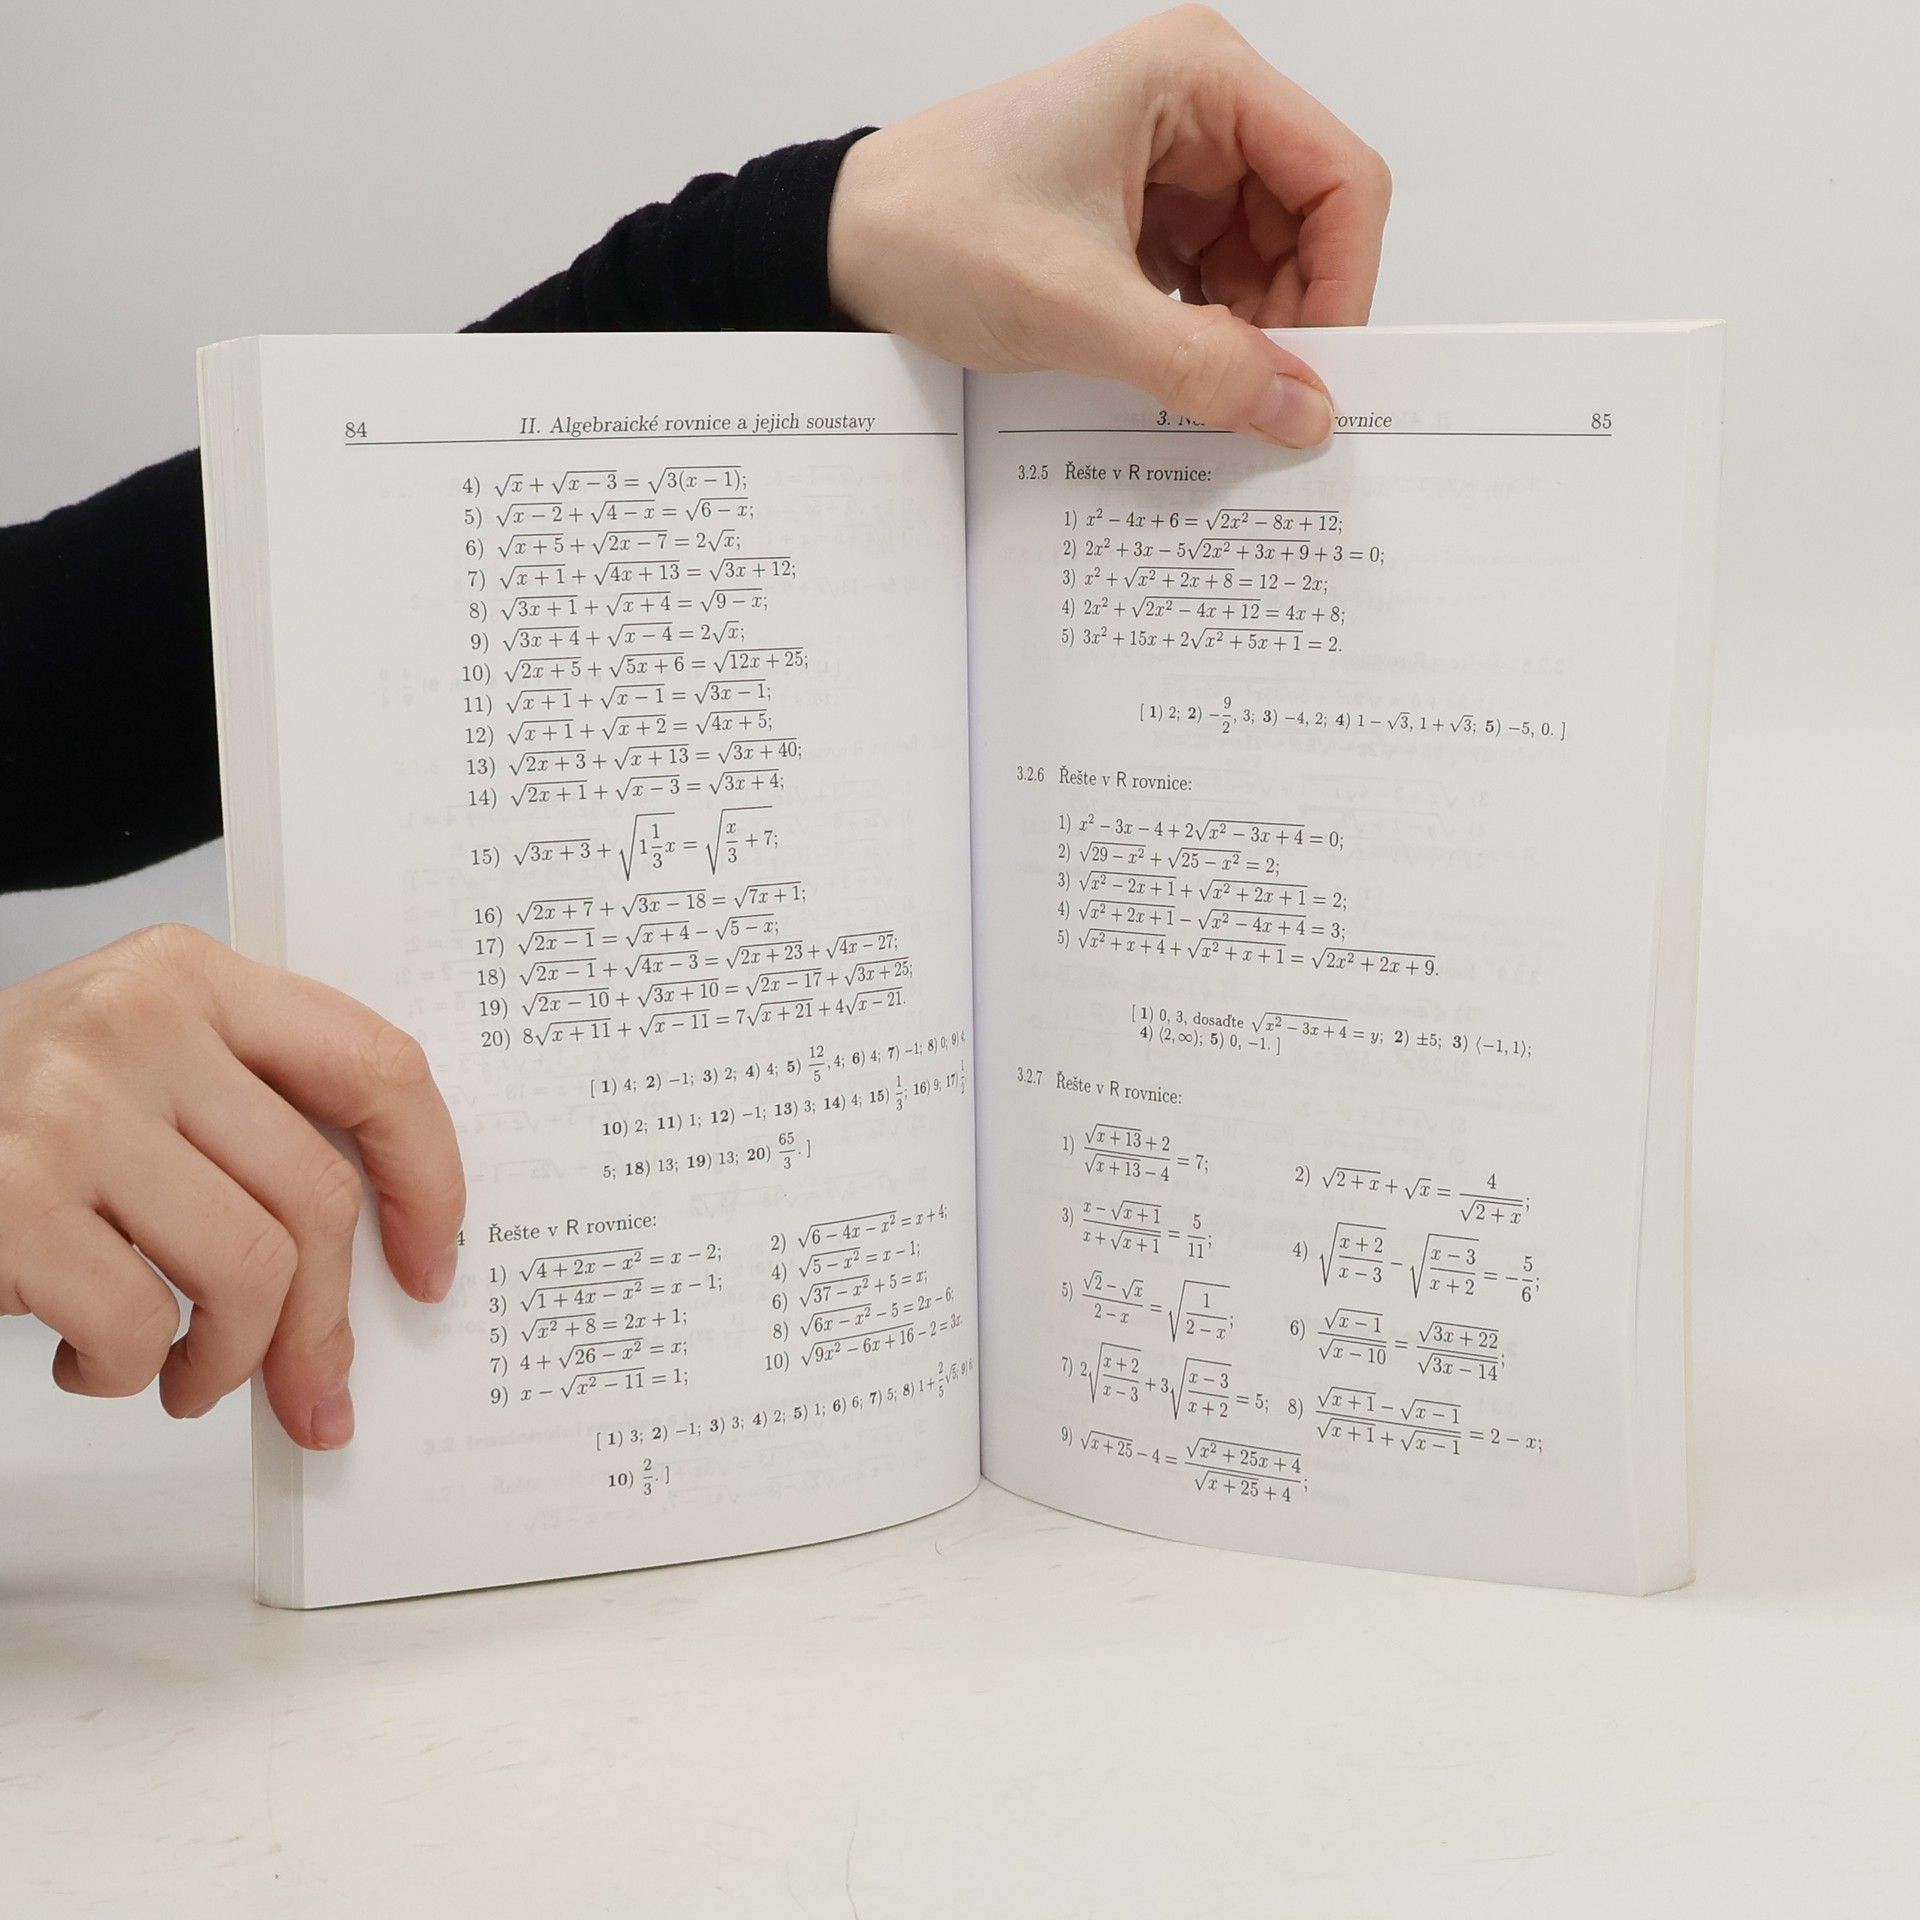 84 II. Algebraické rovnice a jejich soustavy
4) √x + √(x − 3) = √(3(x − 1));
5) √(x − 2) + √(4 − x) = √(6 − x);
6) √(x + 5) + √(2x − 7) = 2√x;
7) √(x + 1) + √(4x + 13) = √(3x + 12);
8) √(3x + 1) + √(x + 4) = √(9 − x);
9) √(3x + 4) + √(x − 4) = 2√x;
10) √(2x + 5) + √(5x + 6) = √(12x + 25);
11) √(x + 1) + √(x − 1) = √(3x − 1);
12) √(x + 1) + √(x + 2) = √(4x + 5);
13) √(2x + 3) + √(x + 13) = √(3x + 40);
14) √(2x + 1) + √(x − 3) = √(3x + 4);
15) √(3x + 3) + √(1 1/3 x) = √(x/3 + 7);
16) √(2x + 7) + √(3x − 18) = √(7x + 1);
17) √(2x − 1) = √(x + 4) − √(5 − x);
18) √(2x − 1) + √(4x − 3) = √(2x + 23) + √(4x − 27);
19) √(2x − 10) + √(3x + 10) = √(2x − 17) + √(3x + 25);
20) 8√(x + 11) + √(x − 11) = 7√(x + 21) + 4√(x − 21).
[ 1) 4; 2) −1; 3) 2; 4) 4; 5) 12/5, 4; 6) 4; 7) −1; 8) 0; 9) 4;
10) 2; 11) 1; 12) −1; 13) 3; 14) 4; 15) 1/3; 16) 9; 17)
5; 18) 13; 19) 13; 20) 65/3. ]
4 Řešte v R rovnice:
1) √(4 + 2x − x²) = x − 2; 2) √(6 − 4x − x²) = x + 4;
3) √(1 + 4x − x²) = x − 1; 4) √(5 − x²) = x − 1;
5) √(x² + 8) = 2x + 1; 6) √(37 − x²) + 5 = x;
7) 4 + √(26 − x²) = x; 8) √(6x − x²) − 5 = 2x − 6;
9) x − √(x² − 11) = 1; 10) √(9x² − 6x + 16) − 2 = 3x.
[ 1) 3; 2) −1; 3) 3; 4) 2; 5) 1; 6) 6; 7) 5; 8) 1 + 2/5 √5; 9) 6;
10) 2/3. ]
3. rovnice 85
3.2.5 Řešte v R rovnice:
1) x² − 4x + 6 = √(2x² − 8x + 12);
2) 2x² + 3x − 5√(2x² + 3x + 9) + 3 = 0;
3) x² + √(x² + 2x + 8) = 12 − 2x;
4) 2x² + √(2x² − 4x + 12) = 4x + 8;
5) 3x² + 15x + 2√(x² + 5x + 1) = 2.
[ 1) 2; 2) −9/2, 3; 3) −4, 2; 4) 1 − √3, 1 + √3; 5) −5, 0. ]
3.2.6 Řešte v R rovnice:
1) x² − 3x − 4 + 2√(x² − 3x + 4) = 0;
2) √(29 − x²) + √(25 − x²) = 2;
3) √(x² − 2x + 1) + √(x² + 2x + 1) = 2;
4) √(x² + 2x + 1) − √(x² − 4x + 4) = 3;
5) √(x² + x + 4) + √(x² + x + 1) = √(2x² + 2x + 9).
[ 1) 0, 3, dosaďte √(x² − 3x + 4) = y; 2) ±5; 3) ⟨−1, 1⟩;
4) ⟨2, ∞); 5) 0, −1. ]
3.2.7 Řešte v R rovnice:
1) (√(x + 13) + 2)/(√(x + 13) − 4) = 7; 2) √(2 + x) + √x = 4/√(2 + x);
3) (x − √(x + 1))/(x + √(x + 1)) = 5/11; 4) √((x + 2)/(x − 3)) − √((x − 3)/(x + 2)) = −5/6;
5) (√2 − √x)/(2 − x) = √(1/(2 − x)); 6) √(x − 1)/√(x − 10) = √(3x + 22)/√(3x − 14);
7) 2√((x + 2)/(x − 3)) + 3√((x − 3)/(x + 2)) = 5; 8) (√(x + 1) − √(x − 1))/(√(x + 1) + √(x − 1)) = 2 − x;
9) √(x + 25) − 4 = √(x² + 25x + 4)/(√(x + 25) + 4);